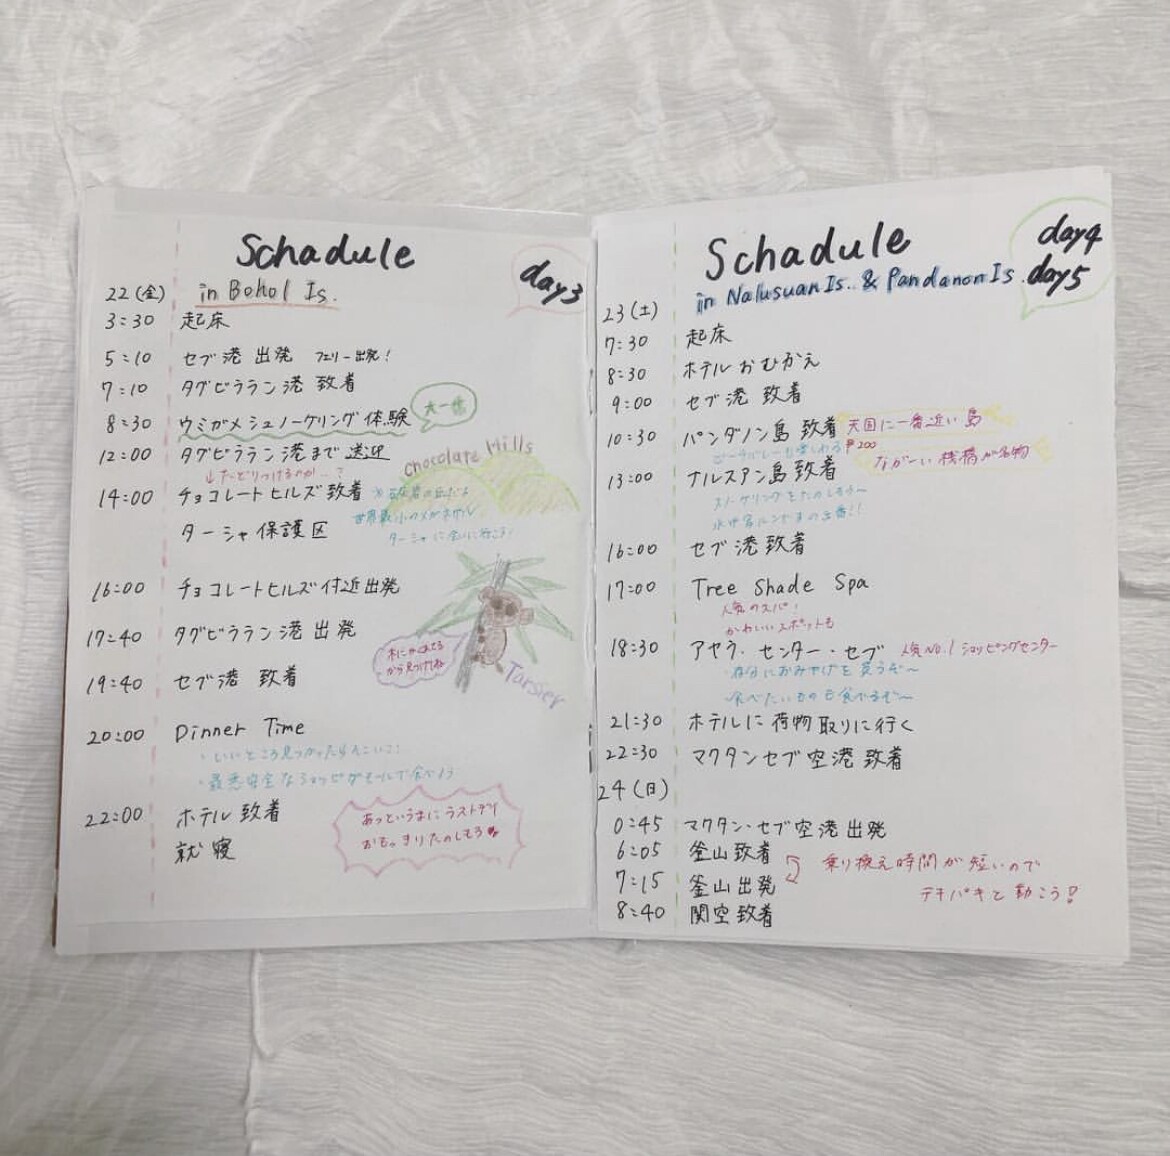 Schadule
day3
22(金) in Bohol Is.
3:30 起床
5:10 セブ港 出発 フェリー出発!
7:10 タグビララン港 致着
8:30 ウミガメシュノーケリング体験
12:00 タグビララン港まで送迎
↓たどりつけるのか…?
Chocolate Hills
14:00 チョコレートヒルズ致着
世界最小のメガネザル
ターシャ保護区 ターシャに会いに行こう!
16:00 チョコレートヒルズ付近出発
17:40 タグビララン港出発
木にやくみてる
から見つけてね
Tarsier
19:40 セブ港 致着
20:00 Dinner Time
・いいところ見つかったらそこいこ!
・最悪安全なショッピグモールで食べよう
22:00 ホテル致着
就寝
あっというまにラストデイ
おもっきりたのしもう
Schadule
day4
day5
in Nalusuan Is. & Pandanon Is.
23(土)
7:30 起床
8:30 ホテルおむかえ
9:00 セブ港 致着
10:30 パンダノン島 致着 天国に一番近い島
ビーチバレーも楽しめる ₱200
ながーい桟橋が名物
13:00 ナルスアン島致着
スノーケリングをたのしもう〜
16:00 セブ港致着
17:00 Tree Shade Spa
人気のスパ!
かわいいスポットも
18:30 アヤラ・センター・セブ 人気No.1ショッピングセンター
・存分におみやげを買うぞ〜
・食べたいものも食べるぞ〜
21:30 ホテルに荷物取りに行く
22:30 マクタンセブ空港致着
24(日)
0:45 マクタン・セブ空港出発
6:05 釜山致着
7:15 釜山出発
乗り換え時間が短いので
テキパキと動こう!
8:40 関空致着